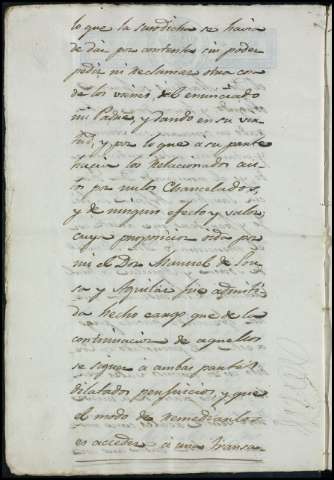 lo que la susodicha se havia
de dar por contenta sin poder
pedir ni reclamar otra cosa
de los vienes del enunciado
mi Padre, y dando en su
y por lo que a su parte
hacia los relacionados
por nulos Chancelados,
y de ningun efecto y valor,
cuya proposicion oida por
mi el Dor. Manuel de
sa y Aguilar fue admiti
da hecho cargo que de la
continuacion de aquellos
se siguen a ambas partes
dilatados perjuicios, y que
el modo de remediarlos
es acceder a una transa